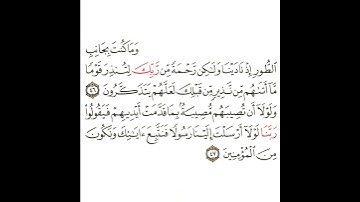 وَمَا كُنتَ بِجَانِبِ
ٱلطُّورِ إِذْ نَادَيْنَا وَلَٰكِن رَّحْمَةً مِّن رَّبِّكَ لِتُنذِرَ قَوْمًا
مَّآ أَتَىٰهُم مِّن نَّذِيرٍ مِّن قَبْلِكَ لَعَلَّهُمْ يَتَذَكَّرُونَ ٤٦
وَلَوْلَآ أَن تُصِيبَهُم مُّصِيبَةٌۢ بِمَا قَدَّمَتْ أَيْدِيهِمْ فَيَقُولُوا۟
رَبَّنَا لَوْلَآ أَرْسَلْتَ إِلَيْنَا رَسُولًا فَنَتَّبِعَ ءَايَٰتِكَ وَنَكُونَ
مِنَ ٱلْمُؤْمِنِينَ ٤٧